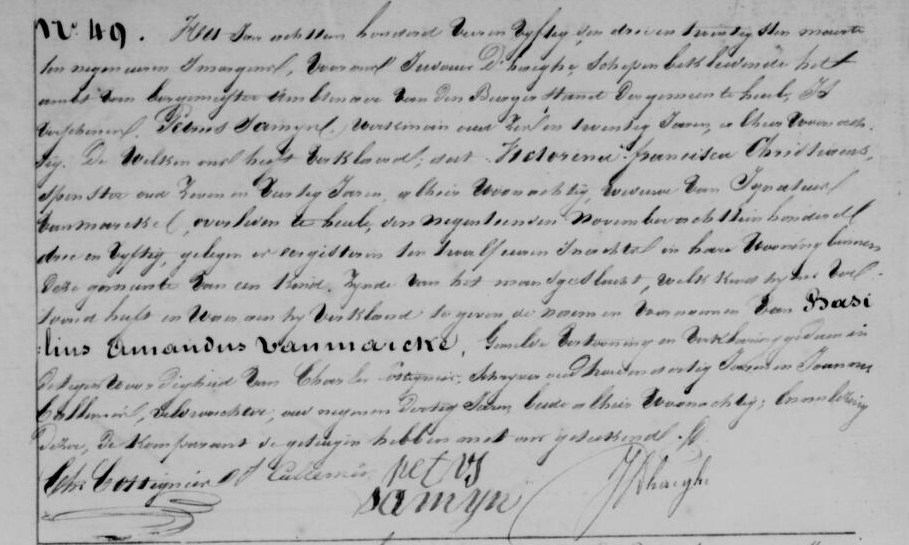 N° 49. Het Jaer achttien honderd vier en vyftig, den drie en twintigsten maerte
ten negen uren s'morgens, voor ons
D'haeghe, Schepen bekleedende het
ambt van borgemeester Ambtenaer van den Burgerstand der gemeente heule, Is
verschenen, Petrus Samyn, werkman oud en twintig Jaren, alhier woonach-
tig. De Welken ons heeft verklaerd, dat Victorina francisca Christiaens,
spinster oud zeven en veertig Jaren, alhier woonachtig, weduwe van Ignatius
Vanmarcke, overleden te heule, den negentienden November achttien honderd
drie en vyftig, gelegen is eergisteren ten twaelf uren s'nachts in hare wooning binnen
deze gemeente van een kind, zynde van het mansgeslacht, welk kind hy ons ver-
toond heeft en waer aen hy verklaerd te geven de naem en voornamen van Basi
lius Amandus Vanmarcke, Gemelde vertooning en verklaring gedaen in
de tegenwoordigheid van Charles Cottignier, Schryver oud en dertig Jaren en Joannes
Callemin, veldwachter, oud negen en dertig Jaren, beide alhier woonachtig; en na lezing
dezer, de komparant de getuigen hebben met ons geteekend.
Ch: Cottignier J Callemin petvs
samyn J D'haeghe